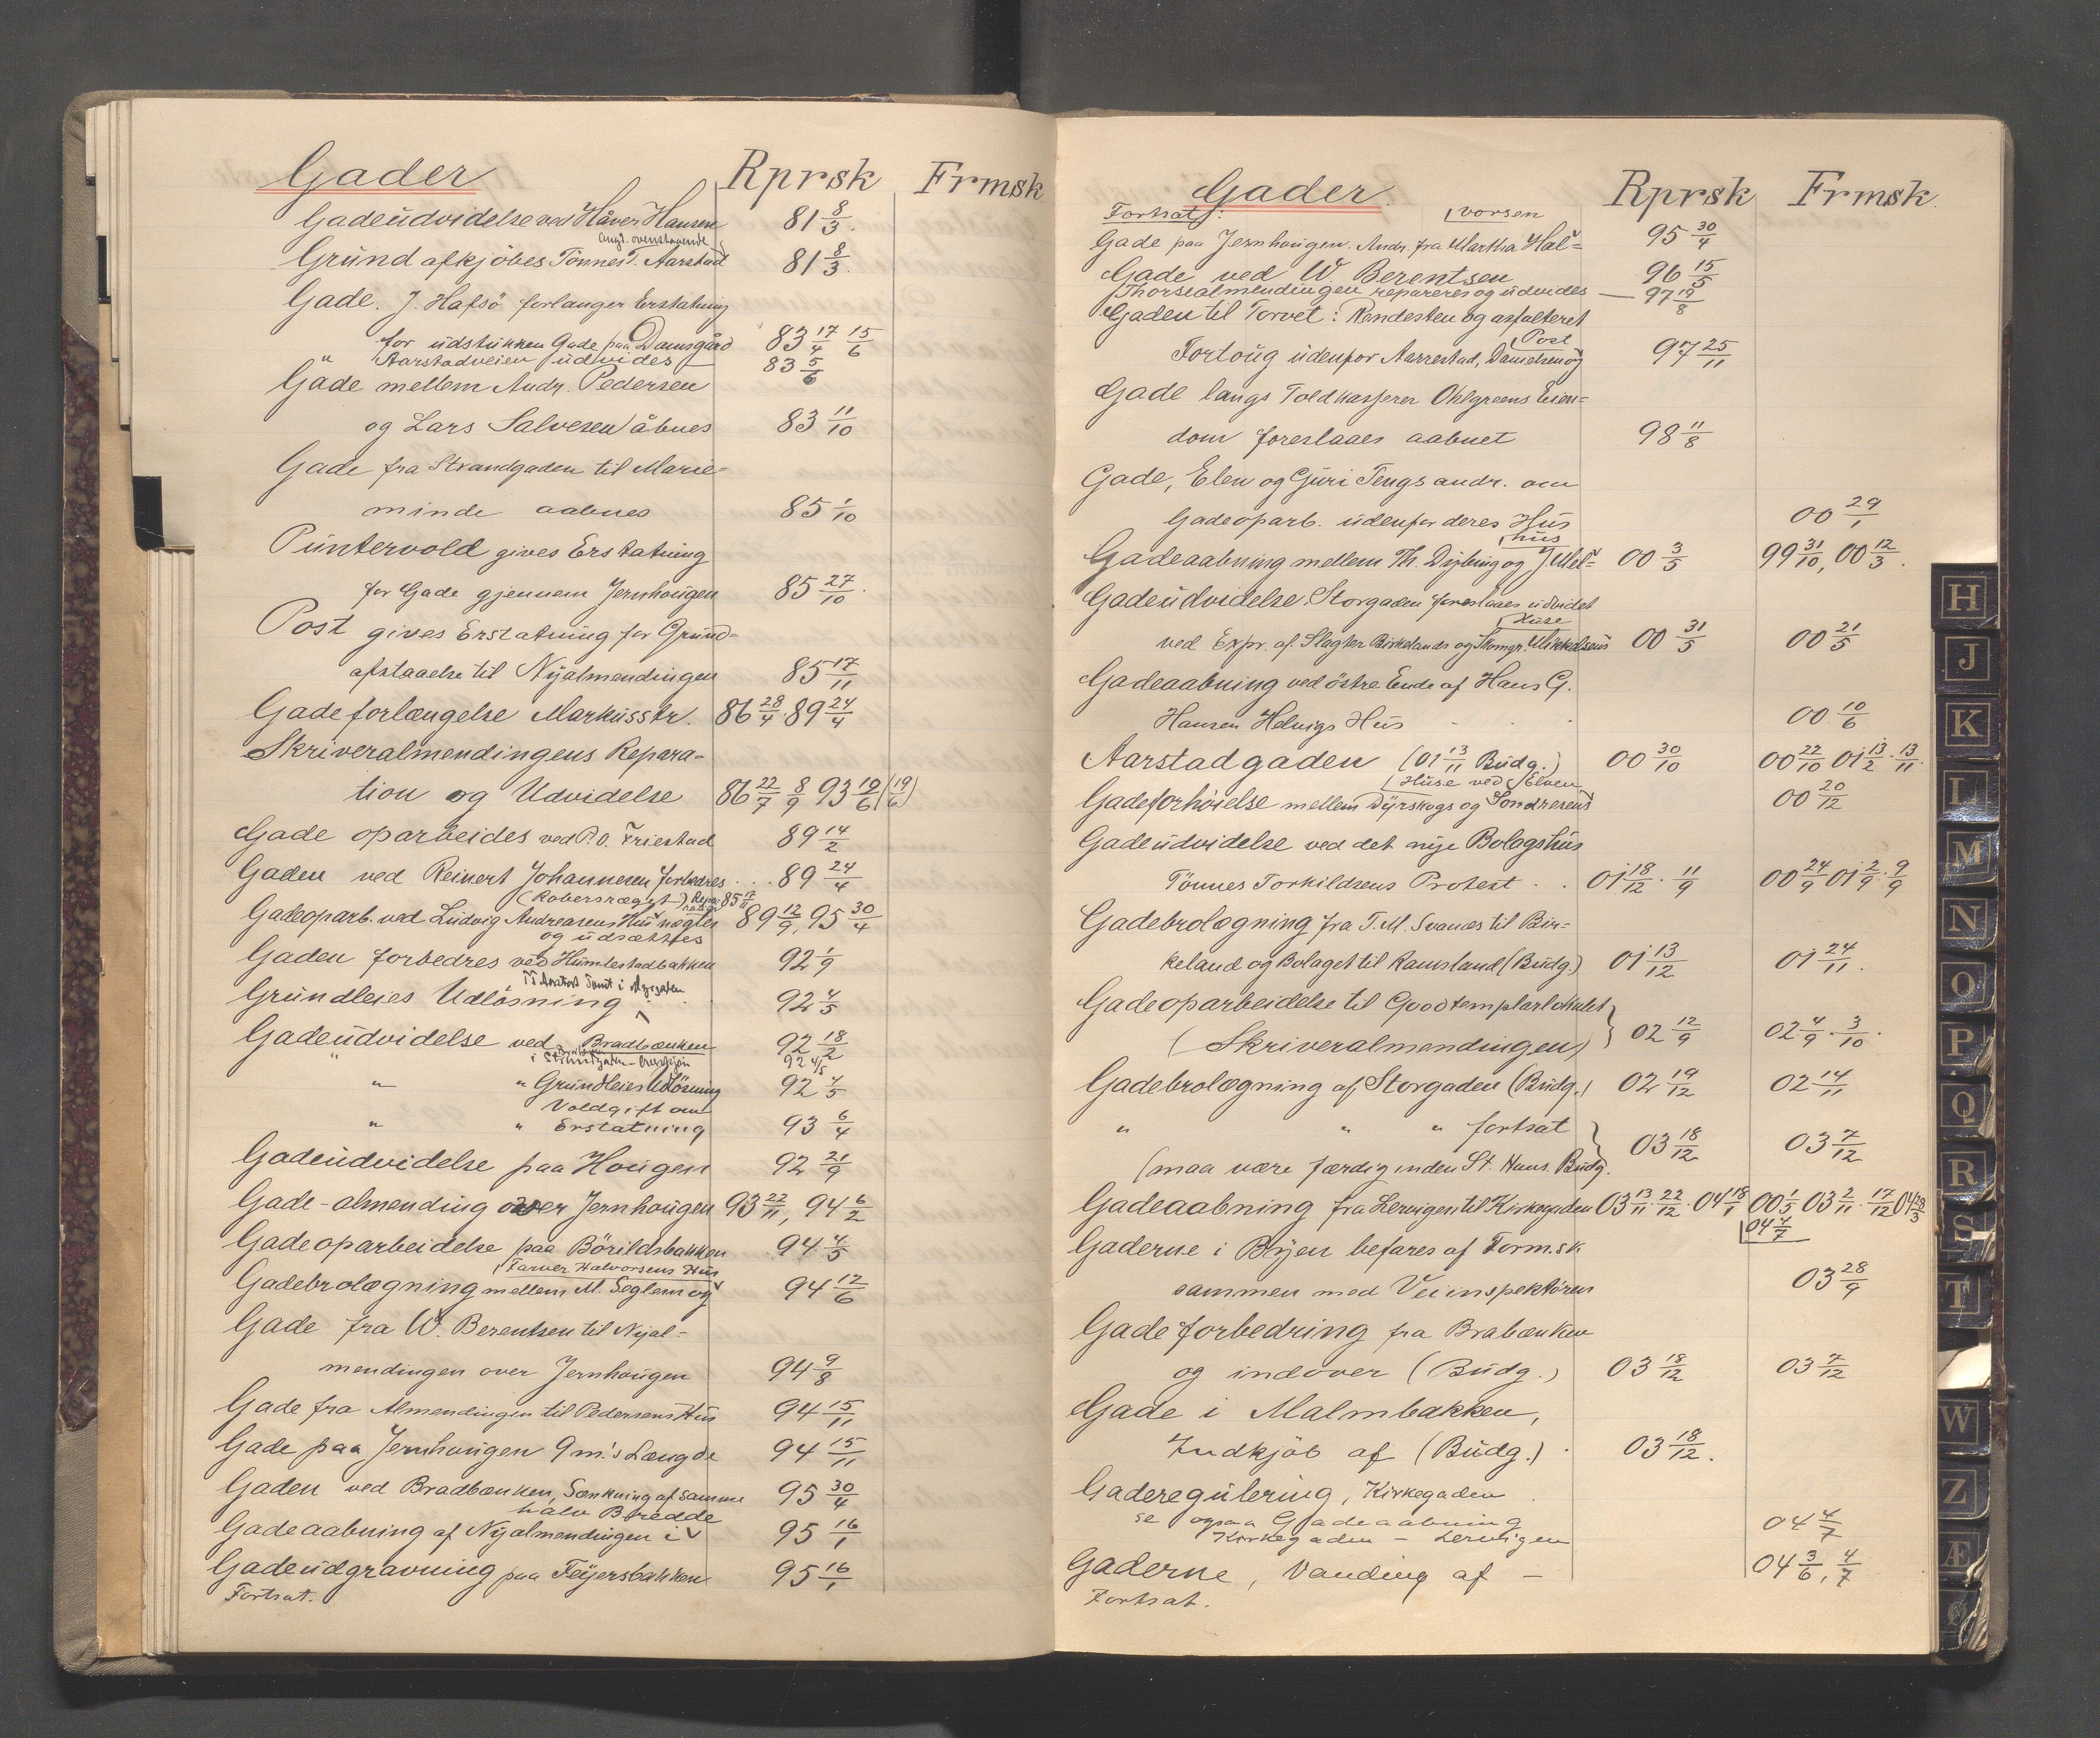 Gader Rprsk Frmsk
Gadeudvidelse ved Håver Hansen 81 8/3.
angd. ovenstaaende
Grund afkjöbes Tönnes T. Aarstad 81 8/3.
Gade. J. Hafsö forlanger Erstatning
for udstukken Gade paa Damsgård 83 17/4 15/6
" Aarstadveien udvides 83 5/6
Gade mellem Andr. Pedersen
og Lars Salvesen åbnes 83 11/10
Gade fra Strandgaden til Marie=
minde aabnes 85 1/10
Puntervold gives Erstatning
for Gade gjennem Jernhougen 85 27/10.
Post gives Erstatning for Grund=
afstaaelse til Nyalmendingen 85 17/11
Gadeforlængelse Markusstr. 86 28/4. 89 24/4
Skriveralmendingens Repara=
tion og Udvidelse 86 22/7 8/9 93 19/6 (19/6)
Gade oparbeides ved P. O. Friestad 89 14/2
Gaden ved Reinert Johannesen forbedres . . 89 24/4
(Robersræget) 85 17/11
Gadeoparb. ved Ludvig Andreasens Hus nægtes 89 12/9, 95 30/4
og udsættes
Gaden forbedres ved Humlestadbakken 92 1/9
Grundleies Udlösning 92 4/5
Gadeudvidelse ved Bradbænken 92 18/2
i Strandgaden 92 4/5
" " Grundleies Udlösning 92 4/5
Voldgift om
" " Erstatning 93 6/4
Gadeudvidelse paa Hougen 92 21/9
Gade-almending over Jernhougen 93 22/11, 94 6/2
Gadeoparbeidelse paa Börildsbakken 94 4/5
Farver Halvorsens Hus
Gadebrolægning mellem M. Seglem og 94 12/6
Gade fra W. Berentsen til Nyal=
mendingen over Jernhougen 94 9/8
Gade fra Almendingen til Pedersens Hus 94 15/11
Gade paa Jernhougen 9 m's Længde 94 15/11
Gaden ved Bradbænken, Sænkning af samme 95 30/4
halv Bredde
Gadeaabning af Nyalmendingen i 95 16/1
Gadeudgravning paa Feyersbakken 95 16/1
Fortsat.
Gader. Rprsk Frmsk
Fortsat: vorsen
Gade paa Jernhougen. Andr. fra Martha Hal= 95 30/4
Gade ved W. Berentsen 96 15/5
Thorsealmendingen repareres og udvides — 97 19/8
Gaden til Torvet: Rendesten og asfalteret
Post
Fortoug udenfor Aarrestad, Danielsen og 97 25/11
Gade langs Toldkasserer Ohlgreens Eien=
dom foreslaaes aabnet 98 11/8
Gade, Elen og Guri Tengs andr. om
Gadeoparb. udenfor deres Hus 00 29/1
hus
Gadeaabning mellem Th. Dybing og J Mel= 00 3/5 99 31/10, 00 12/3.
Gadeudvidelse. Storgaden foreslaaes udvidet
Huse
ved Expr. af Slagter Birkelands og Skomgr. Mikkelsens 00 31/5 00 21/5
Gadeaabning ved östre Ende af Hans G.
Hansen Helvigs Hus . . . 00 10/6
Aarstadgaden (01 13/11 Budg.) 00 30/10 00 22/10 01 13/2. 13/11.
Huse ved Elven
Gadeforhöielse mellem Dyrskogs og Söndresens 00 20/12
Gadeudvidelse ved det nye Bolagshus
Tönnes Torkildsens Protest . . 01 18/12. 11/9 00 24/9 01 2/9. 9/9
Gadebrolægning fra T. M. Svanæs til Bir=
keland og Bolaget til Ramsland (Budg.) 01 13/12 01 24/11.
Gadeoparbeidelse til Goodtemplarlokalet
(Skriveralmendingen) 02 12/9 02 4/9. 3/10.
Gadebrolægning af Storgaden (Budg.) 02 19/12 02 14/11
" " " fortsat
(maa være færdig inden St. Hans. Budg. 03 18/12 03 7/12
Gadeaabning fra Lervigen til Kirkegaden 03 13/11. 22/12. 04 18/1 00 1/5 03 2/11. 17/12 04 28/3
04 4/7
Gaderne i Byen befares af Formsk.
sammen med Veiinspektören 03 28/9
Gadeforbedring fra Brabænken
og indover (Budg.) 03 18/12 03 7/12
Gade i Malmbakken,
Indkjöb af (Budg.) . 03 18/12.
Gaderegulering, Kirkegaden
se ogsaa Gadeaabning
Kirkegaden – Lervigen 04 4/7
Gaderne, Vanding af – 04 3/6, 4/7
Fortsat.
H
J
K
L
M
N
O
P
Q
R
S
T
W
Z
Æ
Ø